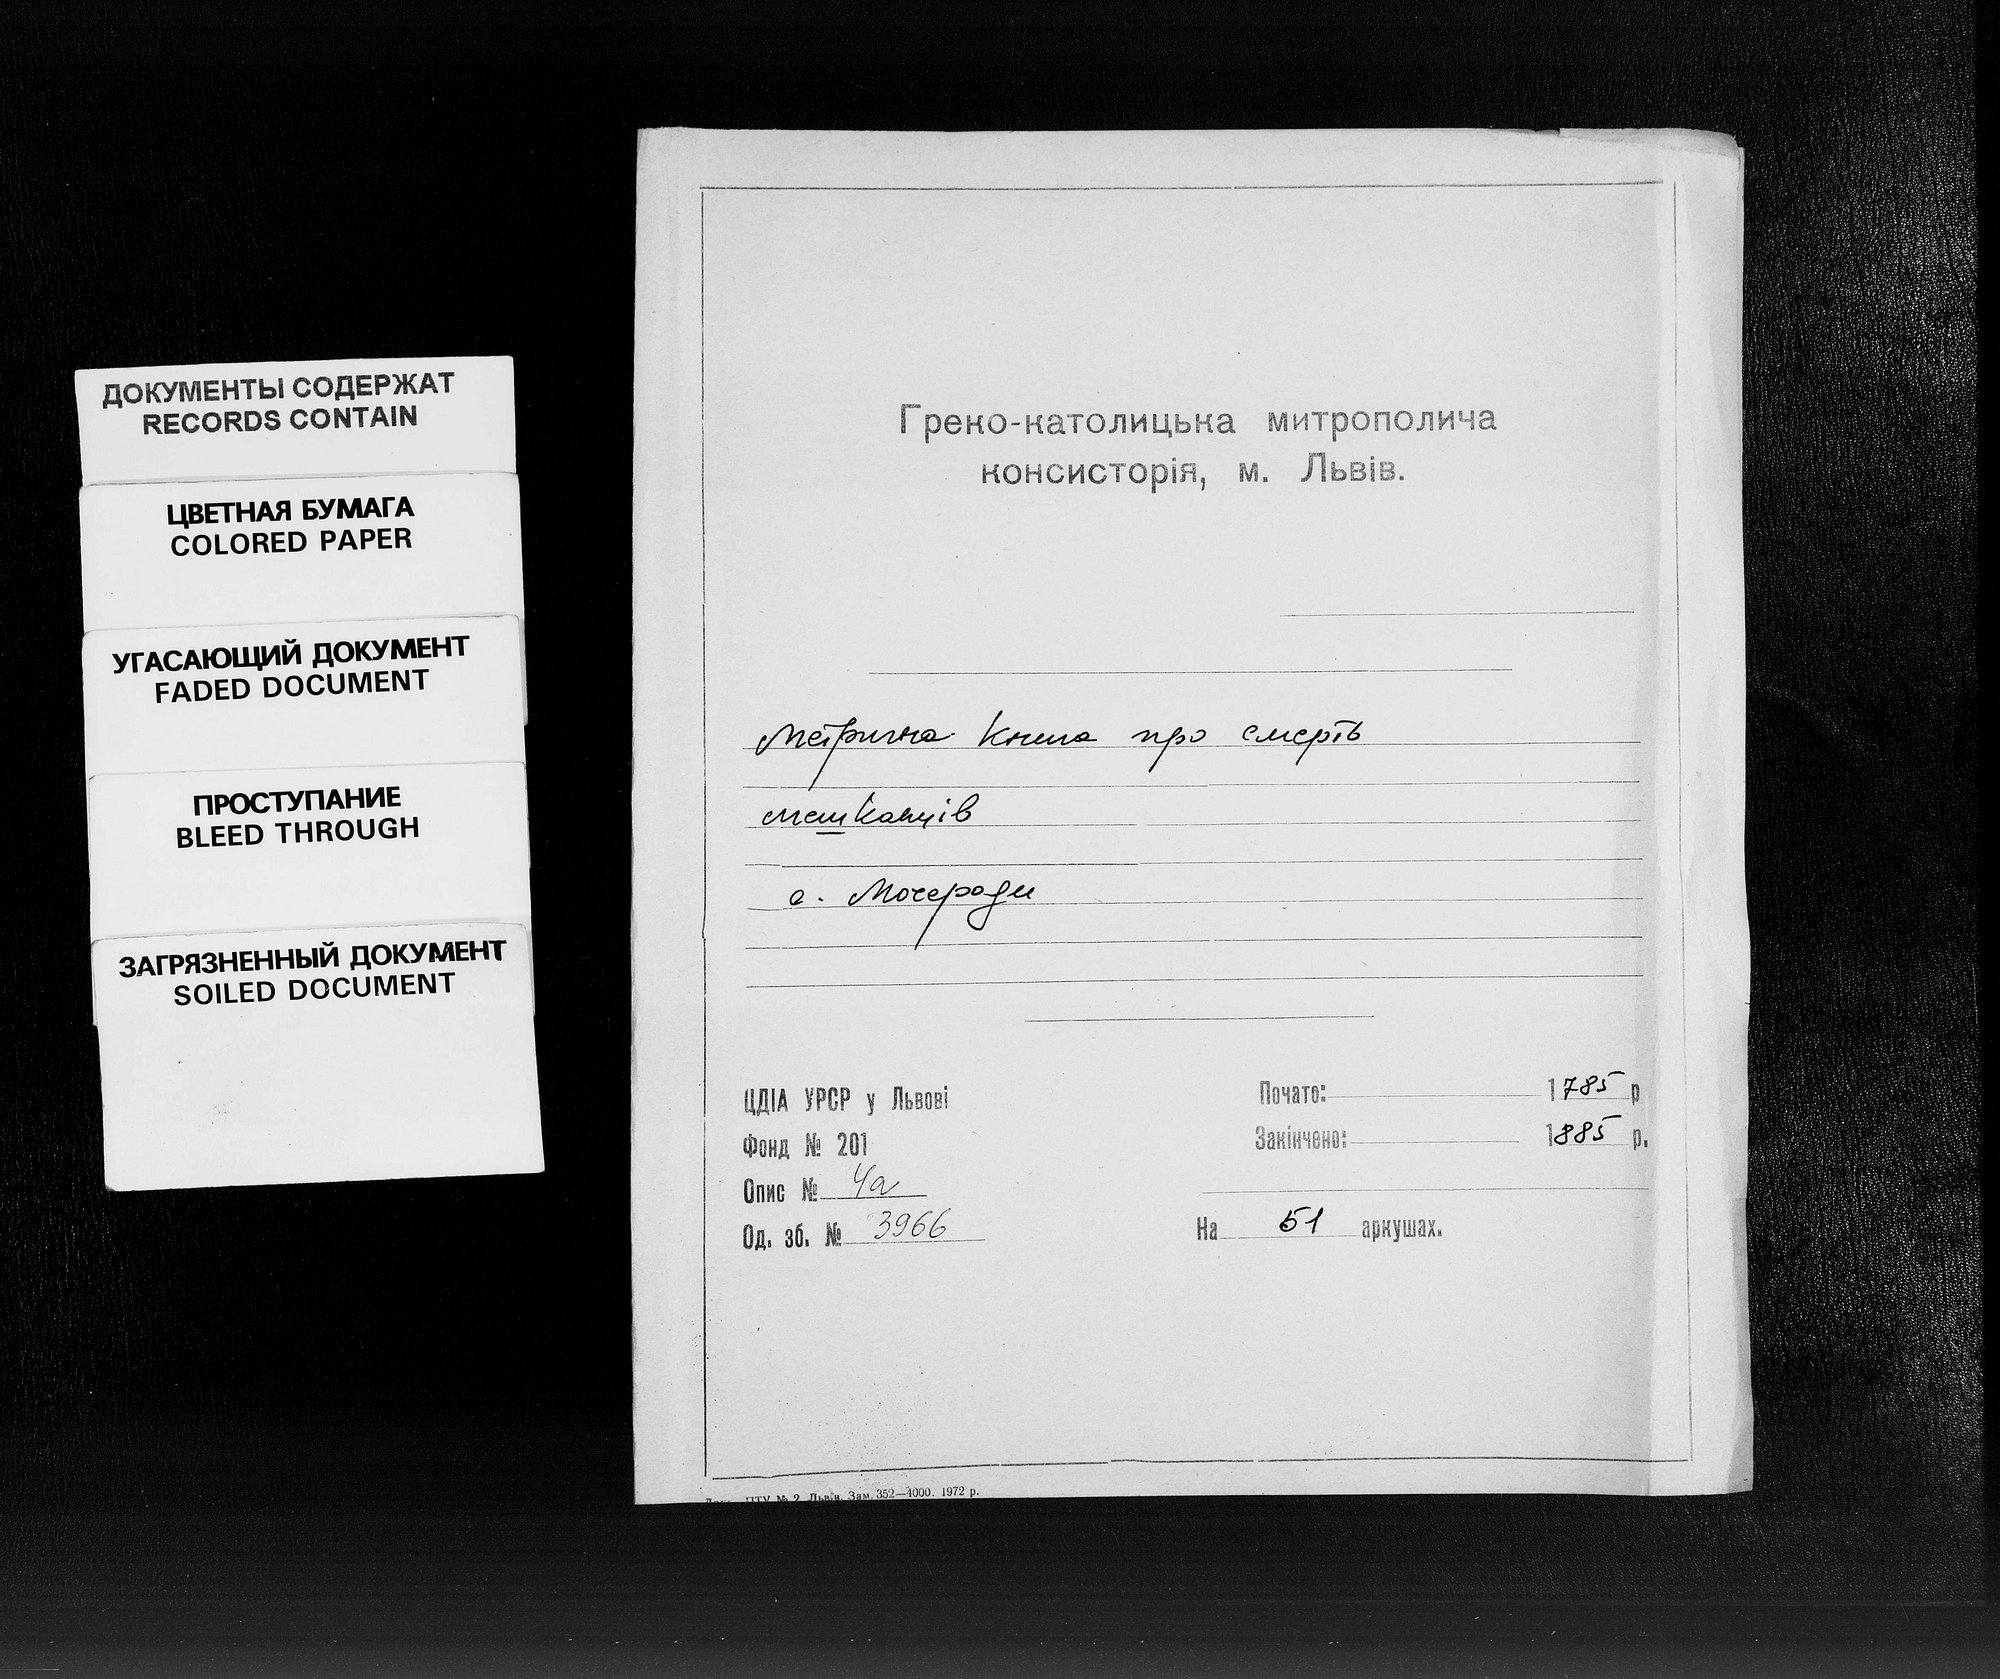 ДОКУМЕНТЫ СОДЕРЖАТ
RECORDS CONTAIN
ЦВЕТНАЯ БУМАГА
COLORED PAPER
УГАСАЮЩИЙ ДОКУМЕНТ
FADED DOCUMENT
ПРОСТУПАНИЕ
BLEED THROUGH
ЗАГРЯЗНЕННЫЙ ДОКУМЕНТ
SOILED DOCUMENT
Греко-католицька митрополича
консисторія, м. Львів.
Метрична книга про смерть
мешканців
с. Мочеради
ЦДІА УРСР у Львові
Фонд № 201
Опис № 4а
Од. зб. № 3966
Почато: 1785 р
Закінчено: 1885 р.
На 51 аркушах.
ПТУ № 2 Львів. Зам. 352—4000. 1972 р.